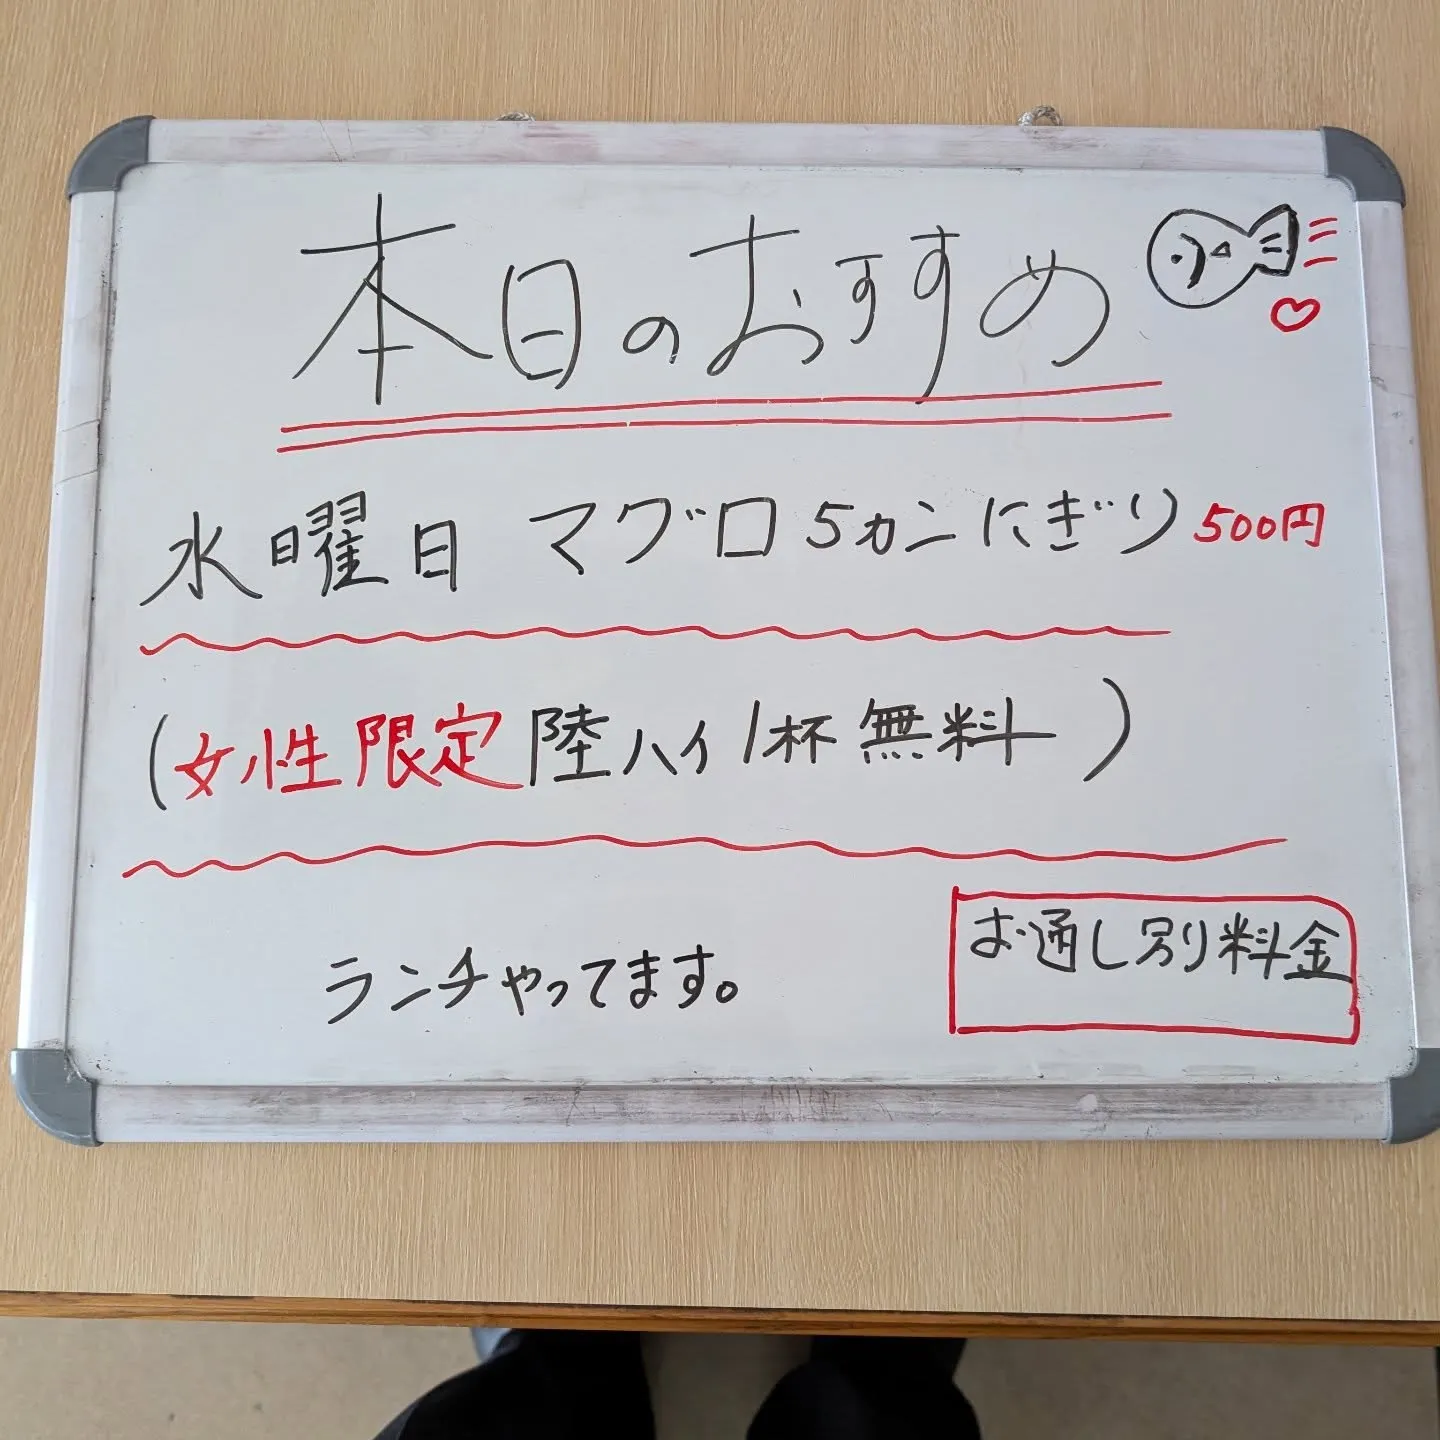 本日のおすすめ
水曜日 マグロ5カンにぎり 500円
(女性限定 陸ハイ1杯無料)
お通し別料金
ランチやってます。